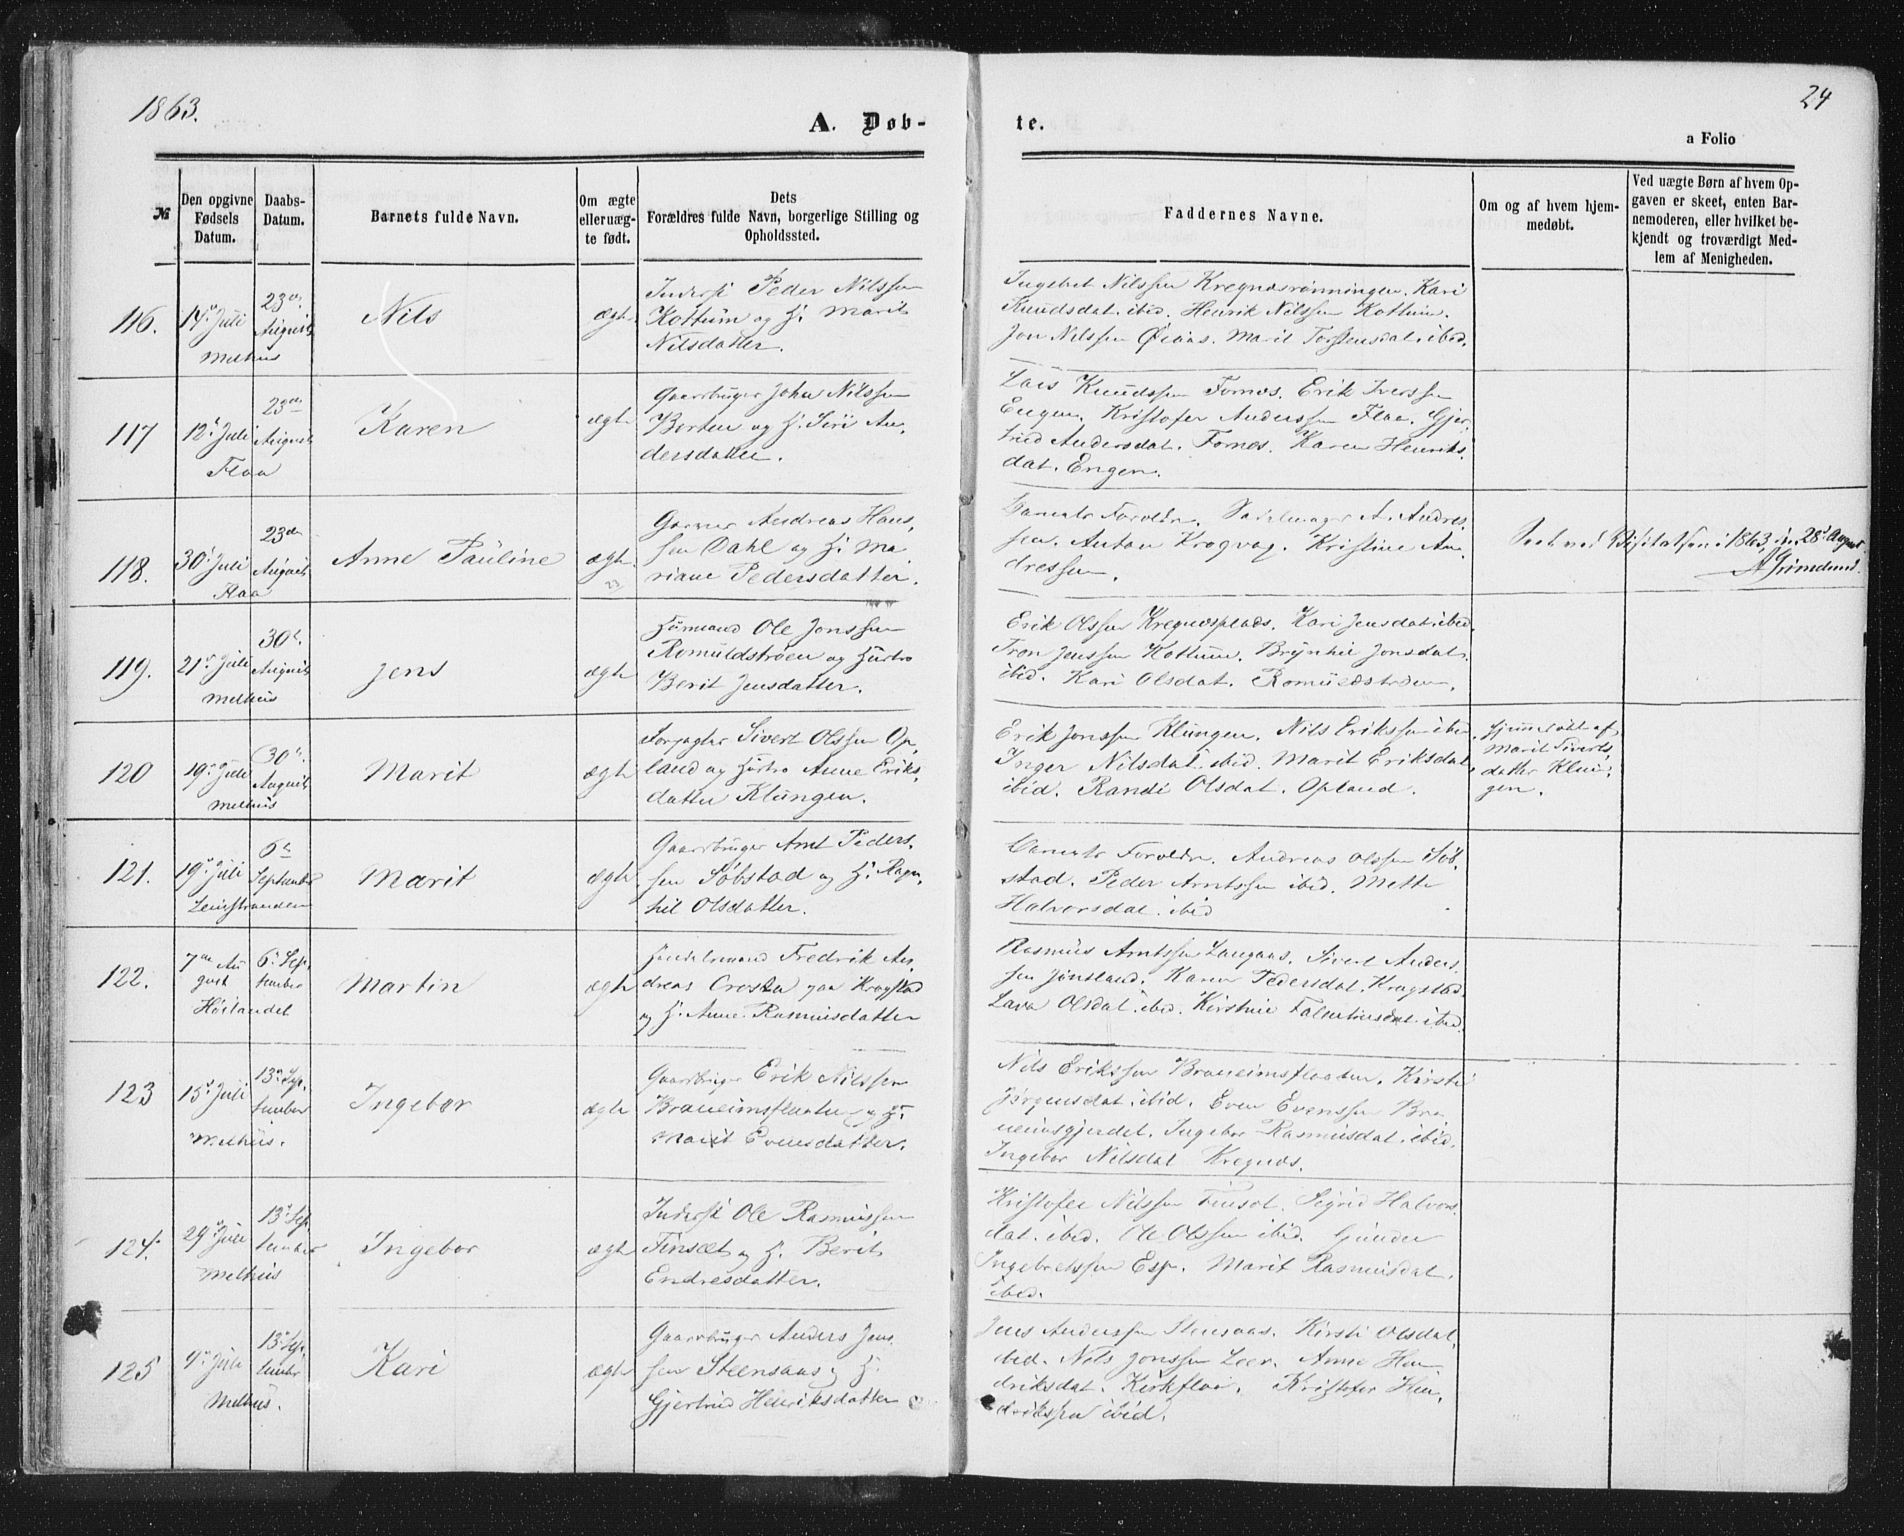 1863.
24
A. Døb-
te.
a Folio
№
Den opgivne
Fødsels
Datum.
Daabs-
Datum.
Barnets fulde Navn.
Om ægte
elleruæg-
te født.
Dets
Forældres fulde Navn, borgerlige Stilling og
Opholdssted.
Faddernes Navne.
Om og af hvem hjem-
medøbt.
Ved uægte Børn af hvem Op-
gaven er skeet, enten Bar-
nemoderen, eller hvilket be-
kjendt og troværdigt Med-
lem af Menigheden.
116.
14de Juli
Melhus
23de
August
Nils
ægte
Inderst Peder Nilssen
Kottum og H. Marit
Nilsdatter.
Ingebret Nilssen Kregnæsrønningen. Kari
Knudsdat. ibid. Henrik Nilssen Kottum.
Jon Nilssen Øiaas. Marit Torstensdat. ibid.
117
12te Juli
Flaa
23de
August
Karen
ægte
Gaardbruger John Nilssen
Borten og H. Siri An-
dersdatter.
Lars Knudssen Fornes. Erik Iverssen
Engen. Kristofer Anderssen Flaa. Gjer-
trud Andersdat. Fornes. Karen Henriks-
dat. Engen.
118.
30te Juli
Flaa
23de
August
Anne Pauline
ægte
Garver Andreas Hans-
sen Dahl og H. Ma-
riane Pedersdatter.
Barnets Forældre. Sadelmager A. Andres-
sen. Anton Krogvag. Kristine An-
dressen.
Seet ved Visitatsen i 1863, d. 28de August
AGrimelund.
119.
21de Juli
Melhus
30te
August
Jens
ægte
Huusmand Ole Jonssen
Romuldstrøen og Hustro
Berit Jensdatter.
Erik Olssen Kregnæsplads. Kari Jensdat. ibid.
Tron Jenssen Kottum. Brynhil Jonsdat.
ibid. Kari Olsdat. Romuldstrøen.
120
19de Juli
Melhus
30te
August
Marit
ægte
Forpagter Sivert Olssen Op-
land og Hustro Anne Eriks-
datter Klungen.
Erik Jonssen Klungen. Nils Erikssen ibid.
Inger Nilsdat. ibid. Marit Eriksdat.
ibid. Randi Olsdat. Opland.
Hjemmedøbt af
Marit Siverts-
datter Klun-
gen.
121.
19de Juli
Leinstranden
6te
September
Marit
ægte
Gaardbruger Arnt Peders-
sen Søbstad og H. Ragn-
hil Olsdatter.
Barnets Forældre. Andreas Olssen Søb-
stad. Peder Arntssen ibid. Mette
Halvorsdat. ibid
122.
7de Au-
gust
Høilandet
6te Sep-
tember
Martin
ægte
Handelsmand Fredrik An-
dreas Crosta paa Krogstad
og H. Anne Rasmusdatter
Rasmus Arntssen Langaas. Sivert Anders-
sen Jønsland. Karen Pedersdat. Krogstad.
Lava Olsdat. ibid. Kirstine Falentinsdat. ibid.
123
15de Juli
Melhus.
13de Sep-
tember
Ingebor
ægte
Gaardbruger Erik Nilssen
Braneimsflaaten og H.
Marit Evensdatter.
Nils Erikssen Braneimsflaaten. Kirsti
Jørgensdat. ibid. Even Evenssen Bra-
neimsgjerdet. Ingebor Rasmusdat. ibid.
Ingebor Nilsdat Kregnæs.
124.
29de Juli
Melhus
13de Sep-
tember
Ingebor
ægte
Inderst Ole Rasmussen
Finsæt og H. Berit
Endresdatter.
Kristofer Nilssen Finsæt. Sigrid Halvors-
dat. ibid. Ole Olssen ibid. Gunder
Ingebretssen Esp. Marit Rasmusdat.
ibid.
125
9de Juli
Melhus.
13de Sep-
tember
Kari
ægte
Gaardbruger Anders Jens-
sen Steensaas og H.
Gjertrud Henriksdatter
Jens Anderssen Stensaas. Kirsti Olsdat.
ibid. Nils Jonssen Loer. Anne Hen-
driksdat. Kirkflaa. Kristofer Hen-
drikssen ibid.